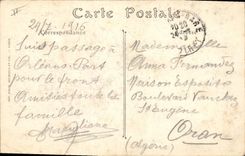 24/7. 1916
Carte Postale
Correspondance
Suis passage à
Orléans. Part
pour le front
Amitiés toute la
famille
Mademoiselle
Anna Fernandez
Maison Esposito
Boulevard
St Eugène
Oran
(Algérie)